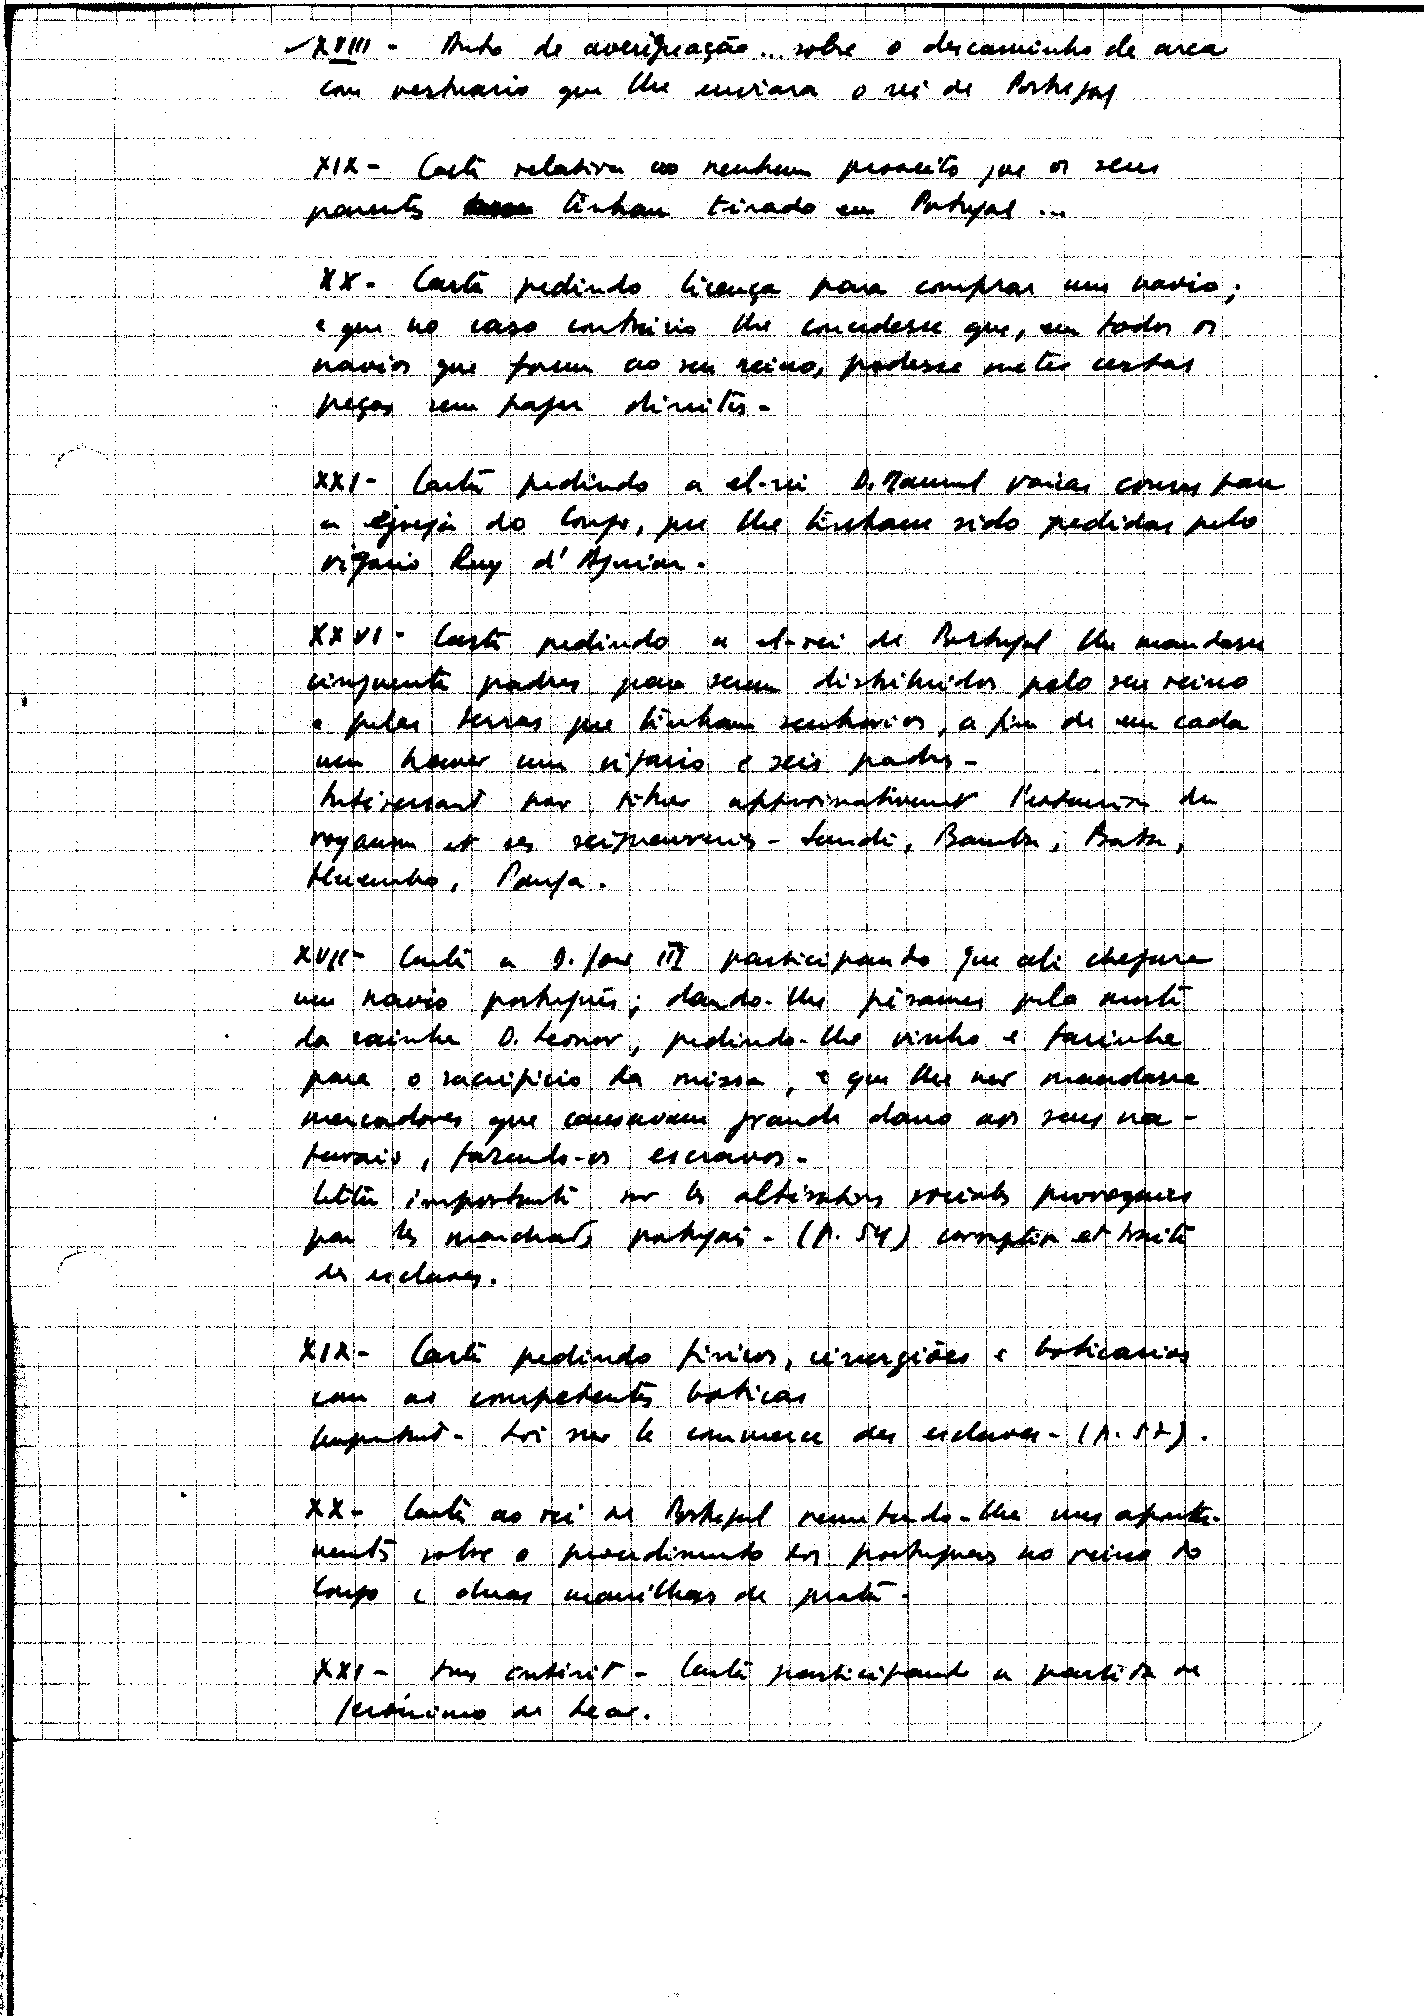 XVIII - Auto de averiguação... sobre o descaminho de arca
com vestuario que lhe enviara o rei de Portugal
XIX - Carta relativa ao nenhum proveito que os seus
parentes tinham tirado em Portugal ...
XX - Carta pedindo licença para comprar um navio;
e que no caso contrario lhe concedesse que, em todos os
navios que forem ao seu reino, podesse meter certas
peças sem pagar direitos -
XXI - Carta pedindo a el-rei D. Manuel varias cousas para
a egreja do Congo, que lhe tinham sido pedidas pelo
vigario Ruy d'Aguiar.
XXVI - Carta pedindo a el-rei de Portugal lhe mandasse
cinquenta padres para serem distribuidos pelo seu reino
e pelas terras que tinham senhorios, a fim de em cada
um haver um vigario e seis padres -
Intéressant par approximativement l'extension du
royaume et ses - Sundi, Bamba, Bata,
Panga.
XVII - Carta a D. João III participando que ali chegara
um navio português; dando-lhe pêsames pela morte
da rainha D. Leonor, pedindo-lhe vinho e farinha
para o sacrificio da missa, e que lhe não mandasse
mercadores que causavam grande dano aos seus na-
turais, fazendo-os escravos -
lettre importante sur les altérations sociales provoquées
par les marchands portugais - (p. 54) corruption et traite
des esclaves.
XIX - Carta pedindo fisicos, cirurgiões e boticarios
com as competentes boticas
Important - Loi sur le commerce des esclaves - (p. 57).
XX - Carta ao rei de Portugal remetendo-lhe uns aponta-
mentos sobre o procedimento dos portugueses no reino do
Congo e duas manilhas de prata -
XXI - sans intérêt - Carta participando a partida de
Jerónimo de Leão.